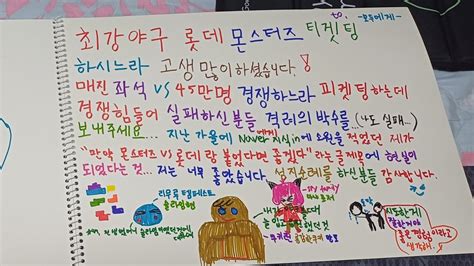 to.
-모두에게-
최강야구 롯데 몬스터즈 티켓팅
하시느라 고생많이하셨습니다!
매진 좌석 vs 45만명 경쟁하느라 피켓팅하는데
경쟁힘들어 실패하신분들 격려의 박수를... (나도 실패...)
보내주세요... 지난 가을에 Naver에게 지식in에 소원을 적었던 제가
"만약 몬스터즈 vs 롯데랑 붙었다면 좋겠다" 라는 글때문에 현실이
되었다는 것... 저는 너무 좋았습니다. 성지순례를 하신분들 감사합니다.
리무르 템페스트
슬라임
시도한게
잘한거야
좋은경험이라고
생각해~!